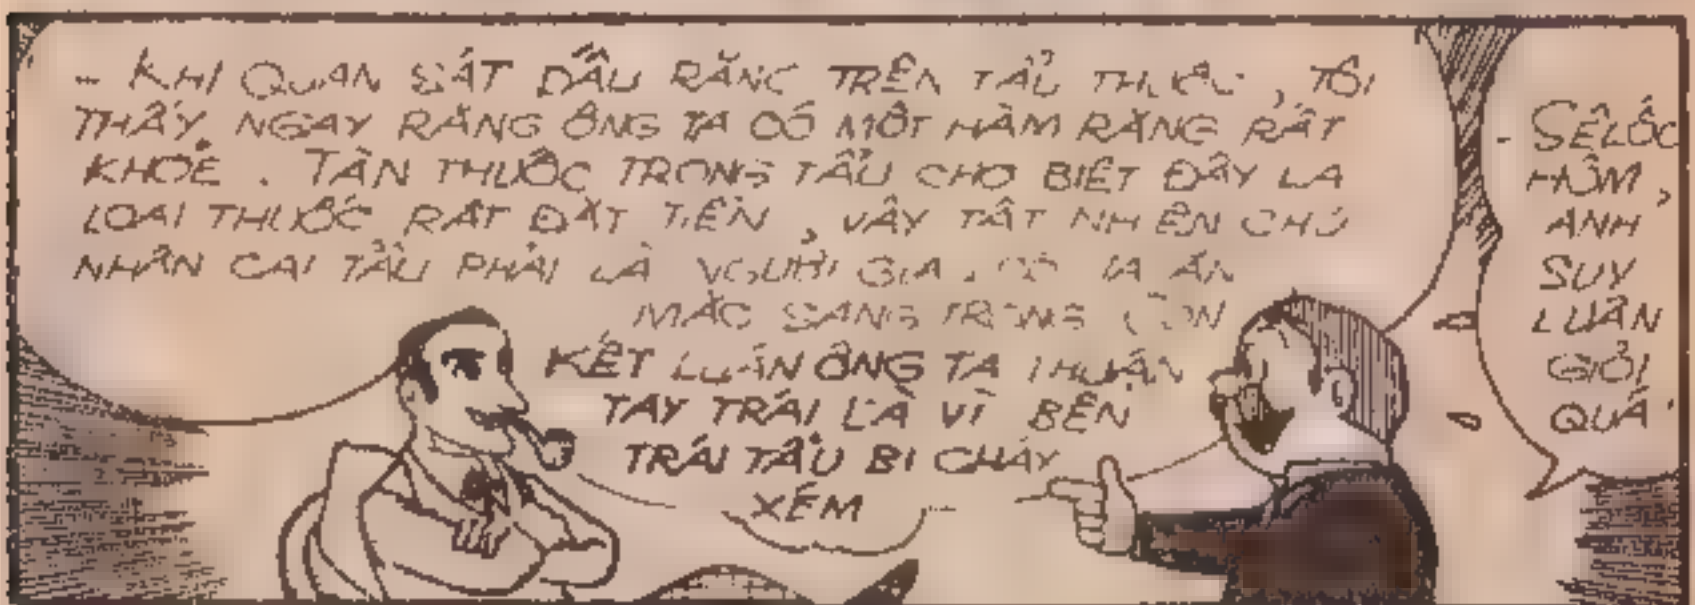 - KHI QUAN SÁT DẤU RĂNG TRÊN TẨU THUỐC, TÔI
THẤY NGAY RĂNG ÔNG TA CÓ MỘT HÀM RĂNG RẤT
KHOẺ. TÀN THUỐC TRONG TẨU CHO BIẾT ĐÂY LA
LOẠI THUỐC RẤT ĐẮT TIỀN, VẬY TẤT NHIÊN CHỦ
NHÂN CÁI TẨU PHẢI LÀ NGƯỜI GIÀ. TA ĂN
MẶC SANG TRỌNG CÒN
KẾT LUẬN ÔNG TA THUẬN
TAY TRÁI LÀ VÌ BÊN
TRÁI TẨU BỊ CHÁY
XÉM
- SÊLỐC
HÔM,
ANH
SUY
LUẬN
GIỎI
QUÁ!